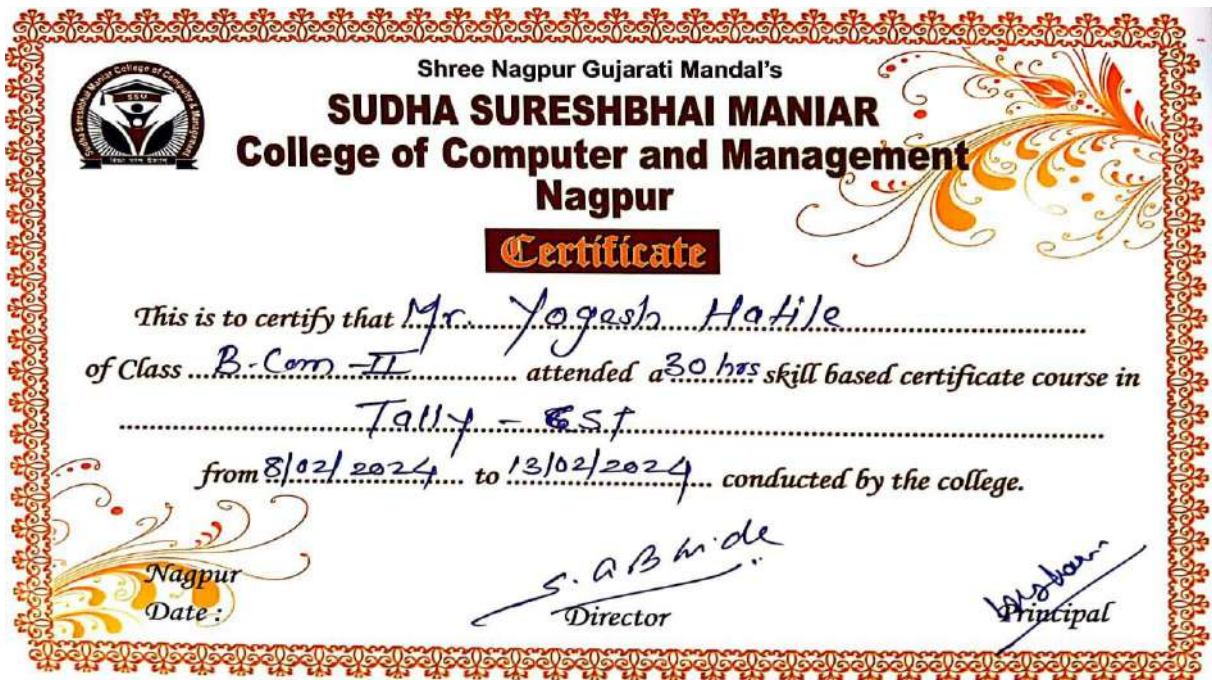 Sudha Sureshbhai Maniar College of Computer & Management
SSM
Shree Nagpur Gujarati Mandal's
SUDHA SURESHBHAI MANIAR
College of Computer and Management
Nagpur
Certificate
This is to certify that Mr. Yogesh Hatile
of Class B.Com-II attended a 30 hrs skill based certificate course in
Tally - GST
from 8/02/2024 to 13/02/2024 conducted by the college.
Nagpur
Date :
S. a Bhide
Director
Principal